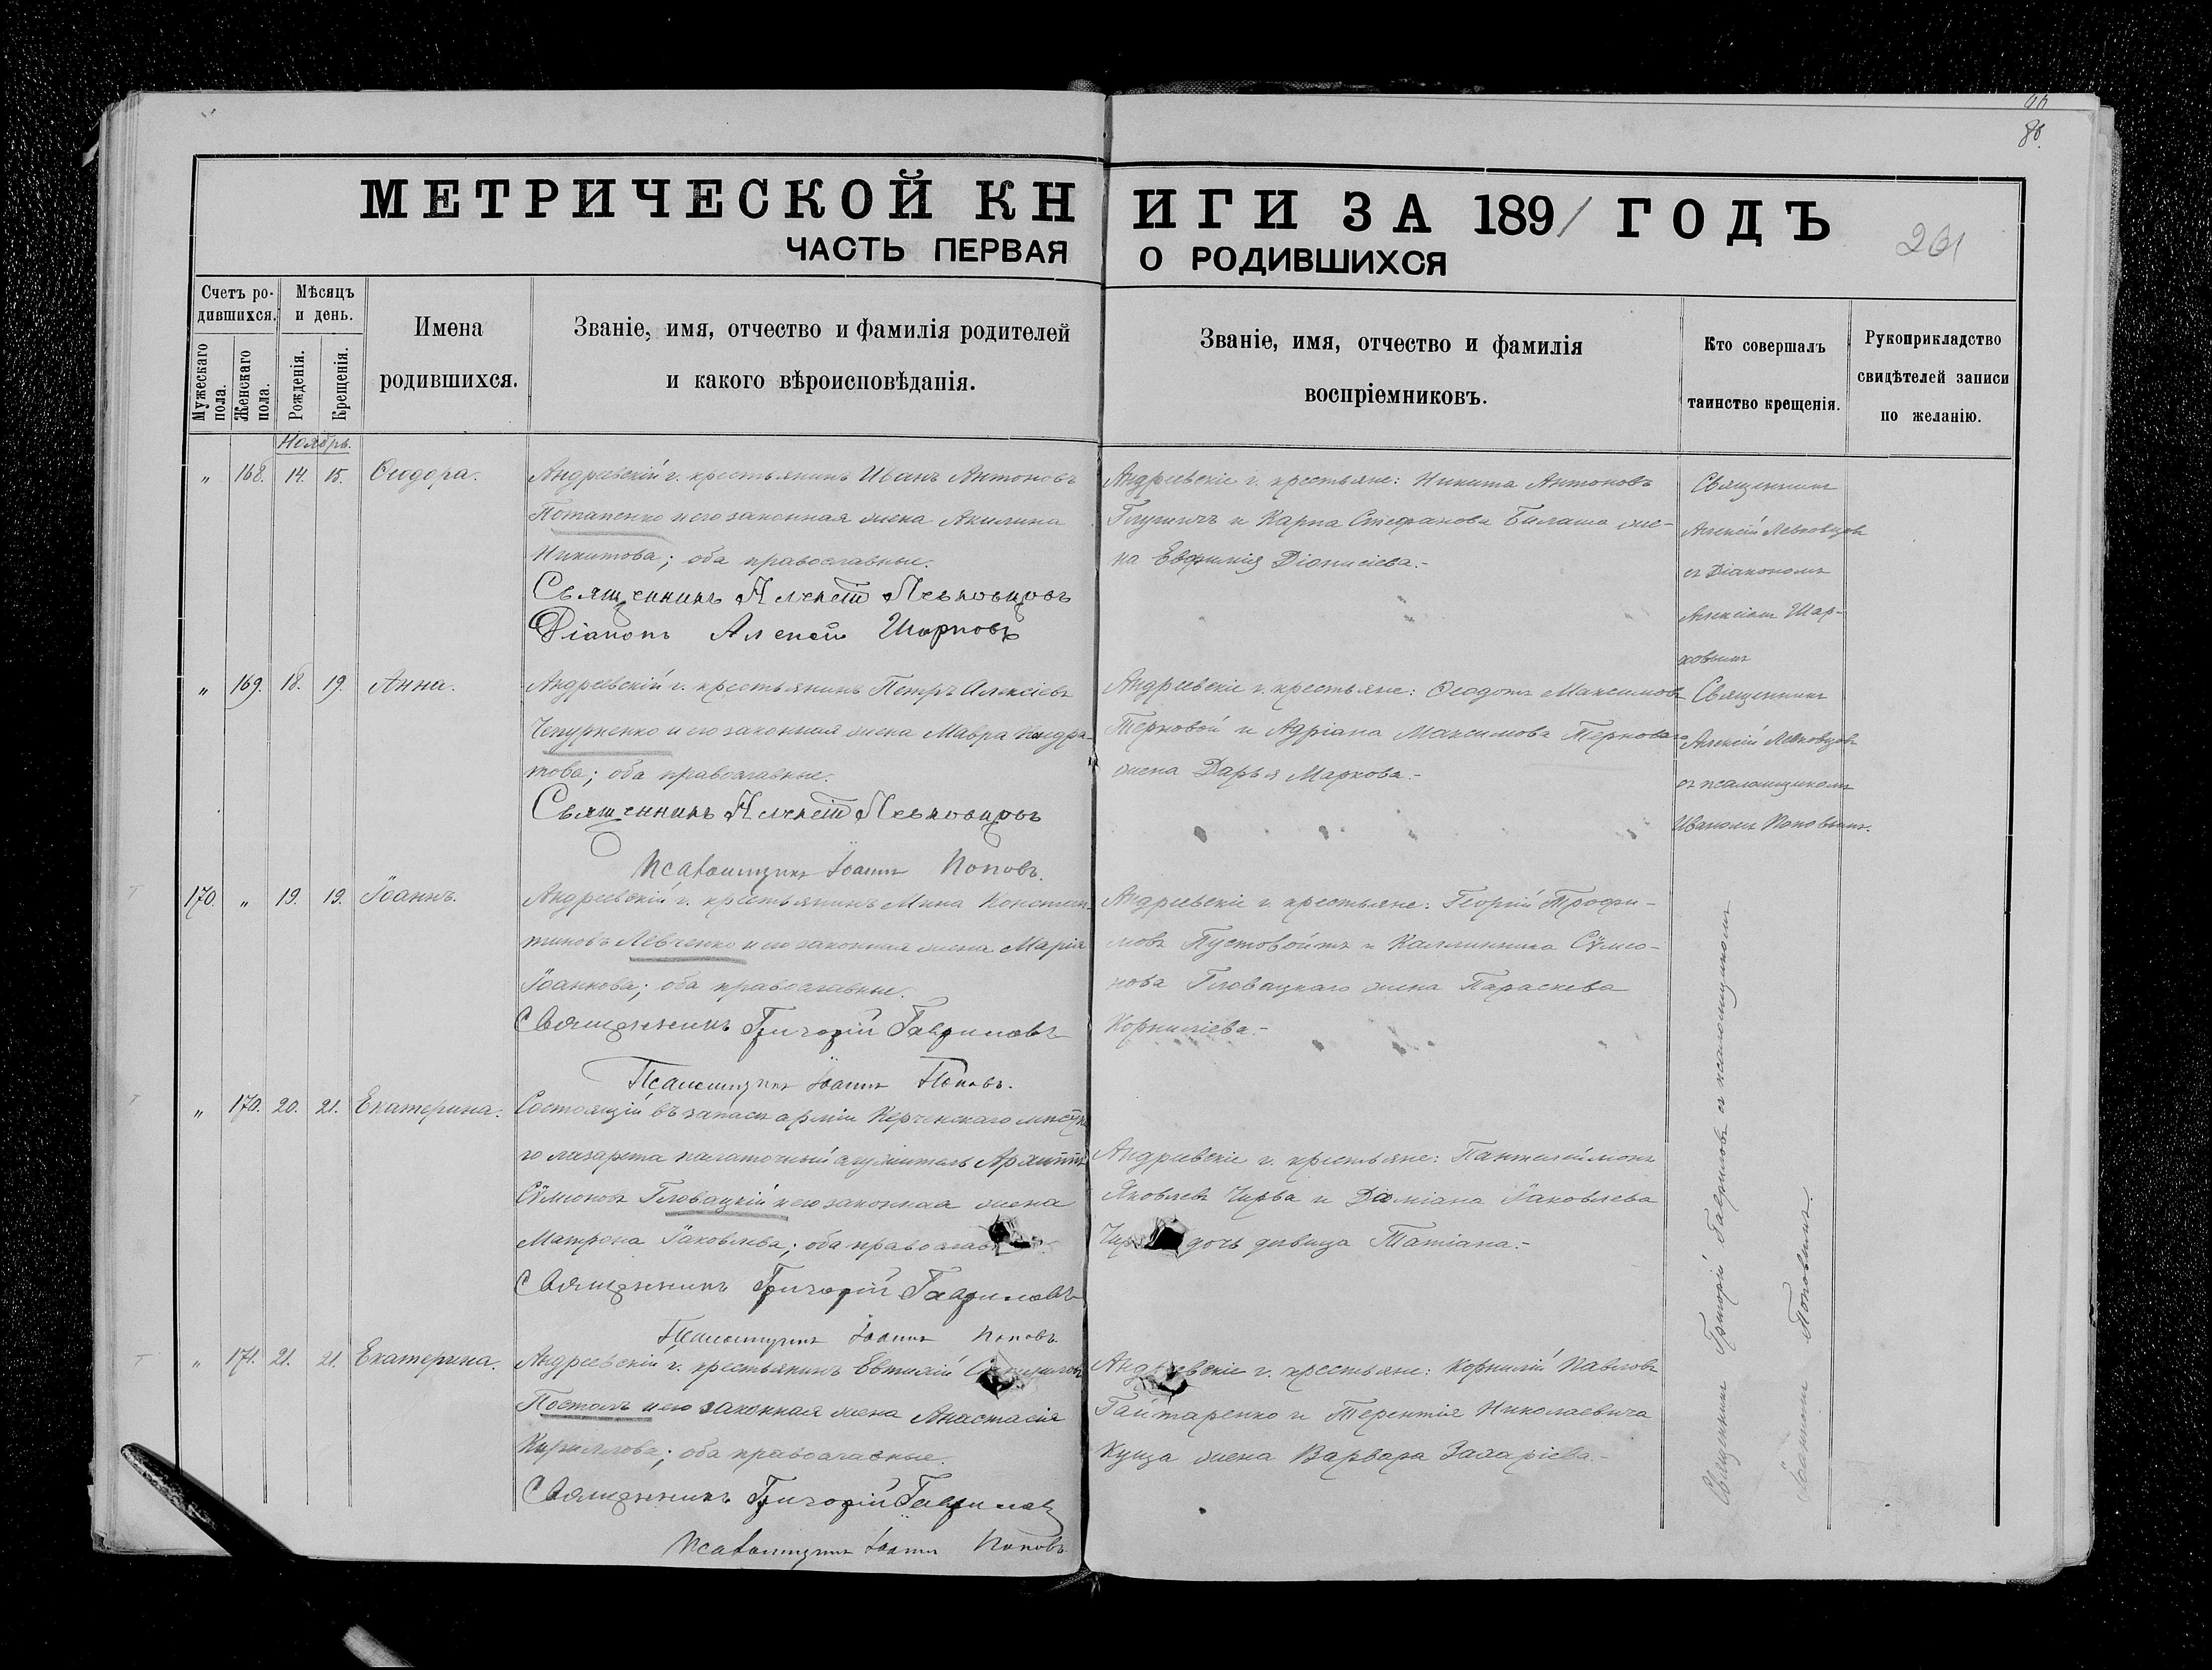 88.
МЕТРИЧЕСКОЙ КНИГИ ЗА 1891 ГОДЪ
261
ЧАСТЬ ПЕРВАЯ О РОДИВШИХСЯ
Счетъ ро-
дившихся.
Мужескаго пола.
Женскаго пола.
Мѣсяцъ
и день.
Рожденія.
Крещенія.
Имена
родившихся.
Званіе, имя, отчество и фамилія родителей
и какого вѣроисповѣданія.
Званіе, имя, отчество и фамилія
воспріемниковъ.
Кто совершалъ
таинство крещенія.
Рукоприкладство
свидѣтелей записи
по желанію.
Ноябрь.
" 168. 14. 15. Ѳеодора.
Андреевскій г. крестьянинъ Иванъ Антоновъ
Потапенко и его законная жена Акилина
Никитова; оба православные.
Священникъ Алексій Левковцовъ
Діаконъ Алексій Шарковъ
Андреевскіе г. крестьяне: Никита Антоновъ
и Карпа Стефанова Билаша же-
на Евфимія Діонисіева.-
Священникъ
Алексій Левковцовъ
съ Діакономъ
Алексіемъ Шар-
ковымъ
" 169. 18. 19. Анна.
Андреевскій г. крестьянинъ Петръ Алексіевъ
Чепурненко и его законная жена Мавра Кондра-
това; оба православные.
Священникъ Алексій Левковцовъ
Псаломщикъ Іоаннъ Поповъ.
Андреевскіе г. крестьяне: Ѳеодотъ Максимовъ
Терновой и Адріана Максимова Терноваго
жена Дарья Маркова.-
Священникъ
Алексій Левковцовъ
съ псаломщикомъ
Иваномъ Поповымъ.
170. " 19. 19. Іоаннъ.
Андреевскій г. крестьянинъ Мина Констан-
тиновъ Левченко и его законная жена Марія
Іоаннова; оба православные.
Священникъ Григорій Гавриловъ
Псаломщикъ Іоаннъ Поповъ.
Андреевскіе г. крестьяне: Георгій Трофи-
мовъ Пустовойтъ и Каллинника Сѵмео-
нова Гловацкаго жена Параскева
Корниліева.-
" 170. 20. 21. Екатерина.
Состоящій въ запасѣ арміи Керченскаго мѣстна-
го лазарета палаточный служитель Архиппъ
Сѵмеоновъ Гловацкій и его законная жена
Матрона Іаковлева; оба
Священникъ Григорій Гавриловъ
Псаломщикъ Іоаннъ Поповъ
Андреевскіе г. крестьяне: Пантелеймонъ
Яковлевъ Чирва и Даміана Іаковлева
дочь дѣвица Татіана.-
" 171. 21. 21. Екатерина.
Андреевскій г. крестьянинъ Евтихій
Постолъ и его законная жена Анастасія
Кириллова; оба православные.
Священникъ Григорій Гавриловъ
Псаломщикъ Іоаннъ Поповъ
Андреевскіе г. крестьяне: Корнилій Павловъ
Гайтаренко и Терентія Николаевича
Куца жена Варвара Захаріева.-
Священникъ Григорій Гавриловъ съ псаломщикомъ
Іоанномъ Поповымъ.